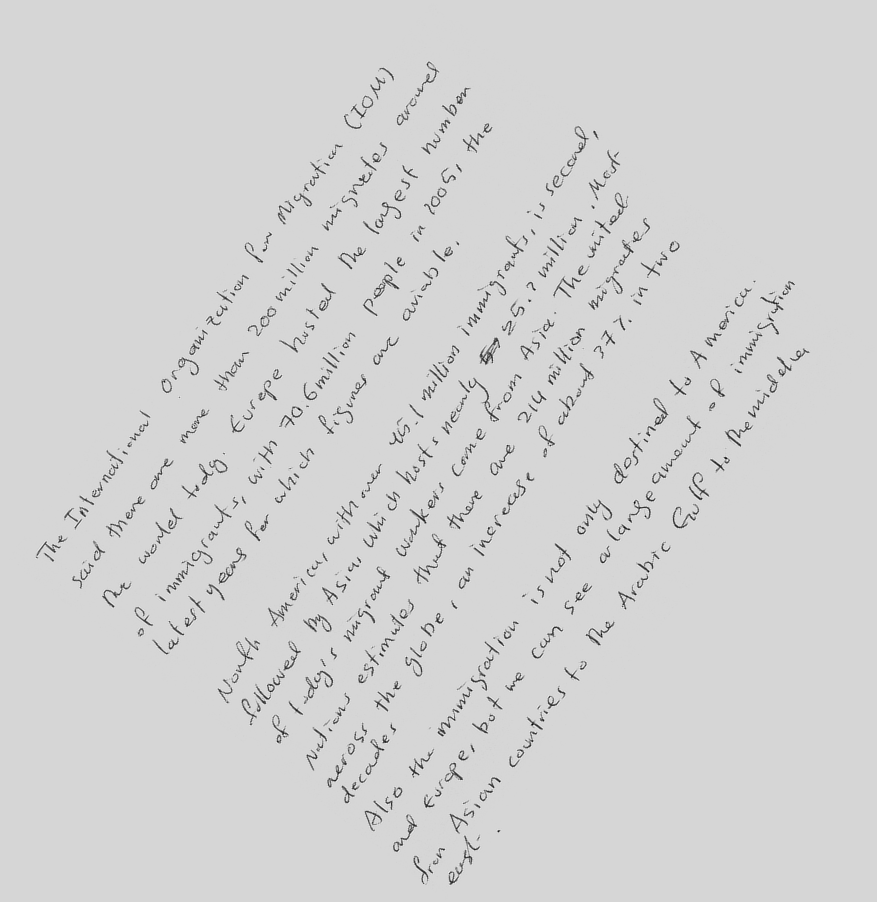 The International Organization for Migration (IOM)
said there are more than 200 million migrates around
The world tody. Europe hosted The largest number
of immigrants, with 70.6 million people in 2005, the
latest years for which figures are aviable.
North America, with over 45.1 million immigrants, is second,
followed by Asia, which hosts nearly 25.2 million. Most
of tody's migrant workers come from Asia. The united
Nations estimates that there are 214 million migrates
across the globe, an increase of about 37%. in two
decades
Also the immigration is not only destined to America.
and Europe, but we can see a large ament of immigration
from Asian countries to the Arabic Gulf to the middle
east.